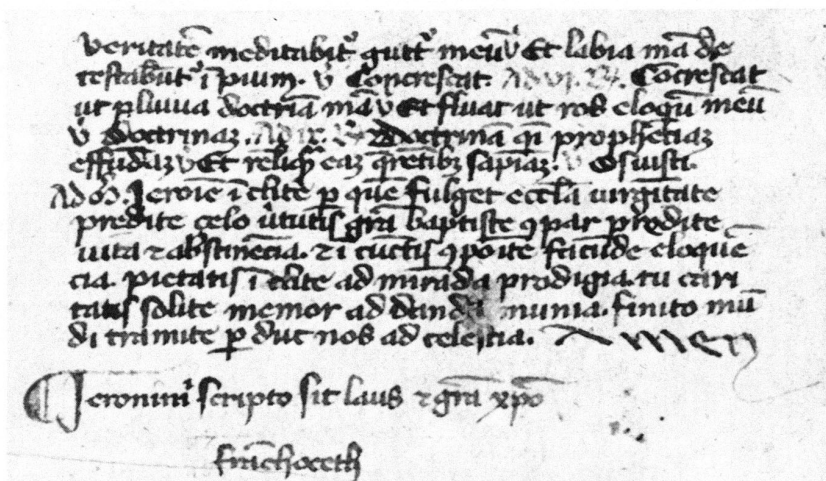 veritatē meditabit᷑ gutt᷑ meū ℣ Et labia mea de
testabūt᷑ īpium. ℣ Concrescat. Ad vj. ℟. Cōcrescat
ut pluvia doctrīa mea ℣ Et fluat ut ros eloqm̄ meū
℣ Doctrinaꝫ. Ad ix. ℟ Doctrinā qi prophetiaꝫ
effūdaꝫ ℣ Et relīqꝫ eaꝫ q̄rētibꝫ sapiaꝫ. ℣ Os iusti.
Ad Jeroīe īclite ꝑ quē fulget eccl̄a virgītate
predite celo v̓tutis gr̄a baptiste ꝯpar predite
vita ⁊ abstinēcia. ⁊ i cūctis ꝯpoīte fācūde eloquē
cia. pietatis īclite ad mirāda prodigia. tu cari
tatis solite memor ad danda munia. finito mū
di tramite ꝑduc nos ad celestia. Amen
¶ Jeronimi scripto sit laus ⁊ gr̄a xp̄o